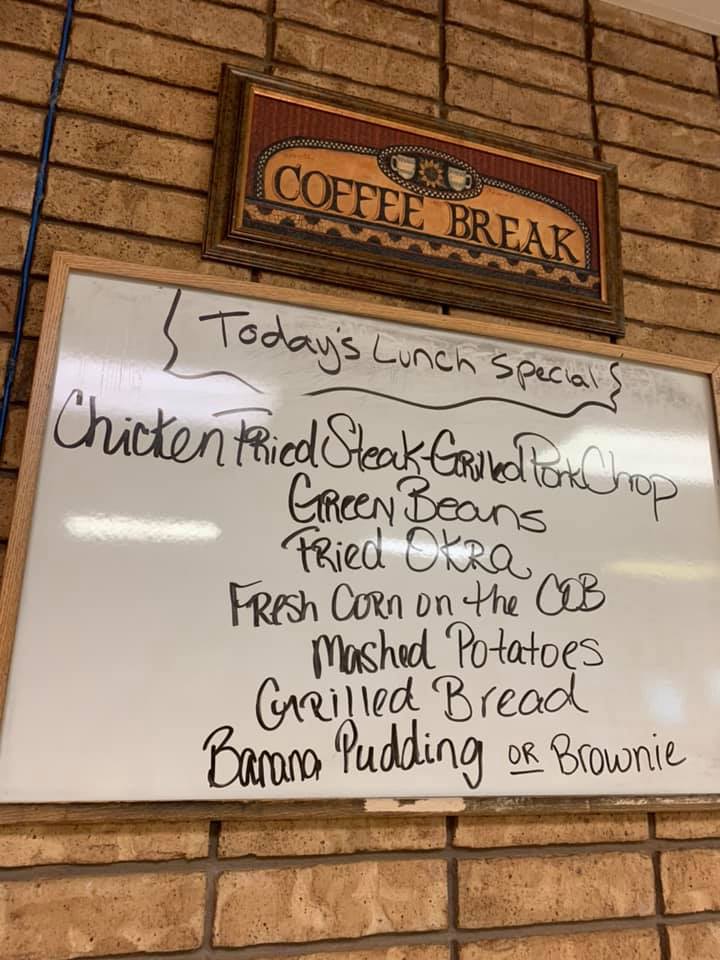 COFFEE BREAK
Today's Lunch Special
Chicken Fried Steak-Grilled Pork Chop
Green Beans
Fried OKRA
FRESH CORN on the COB
Mashed Potatoes
Grilled Bread
Banana Pudding OR Brownie